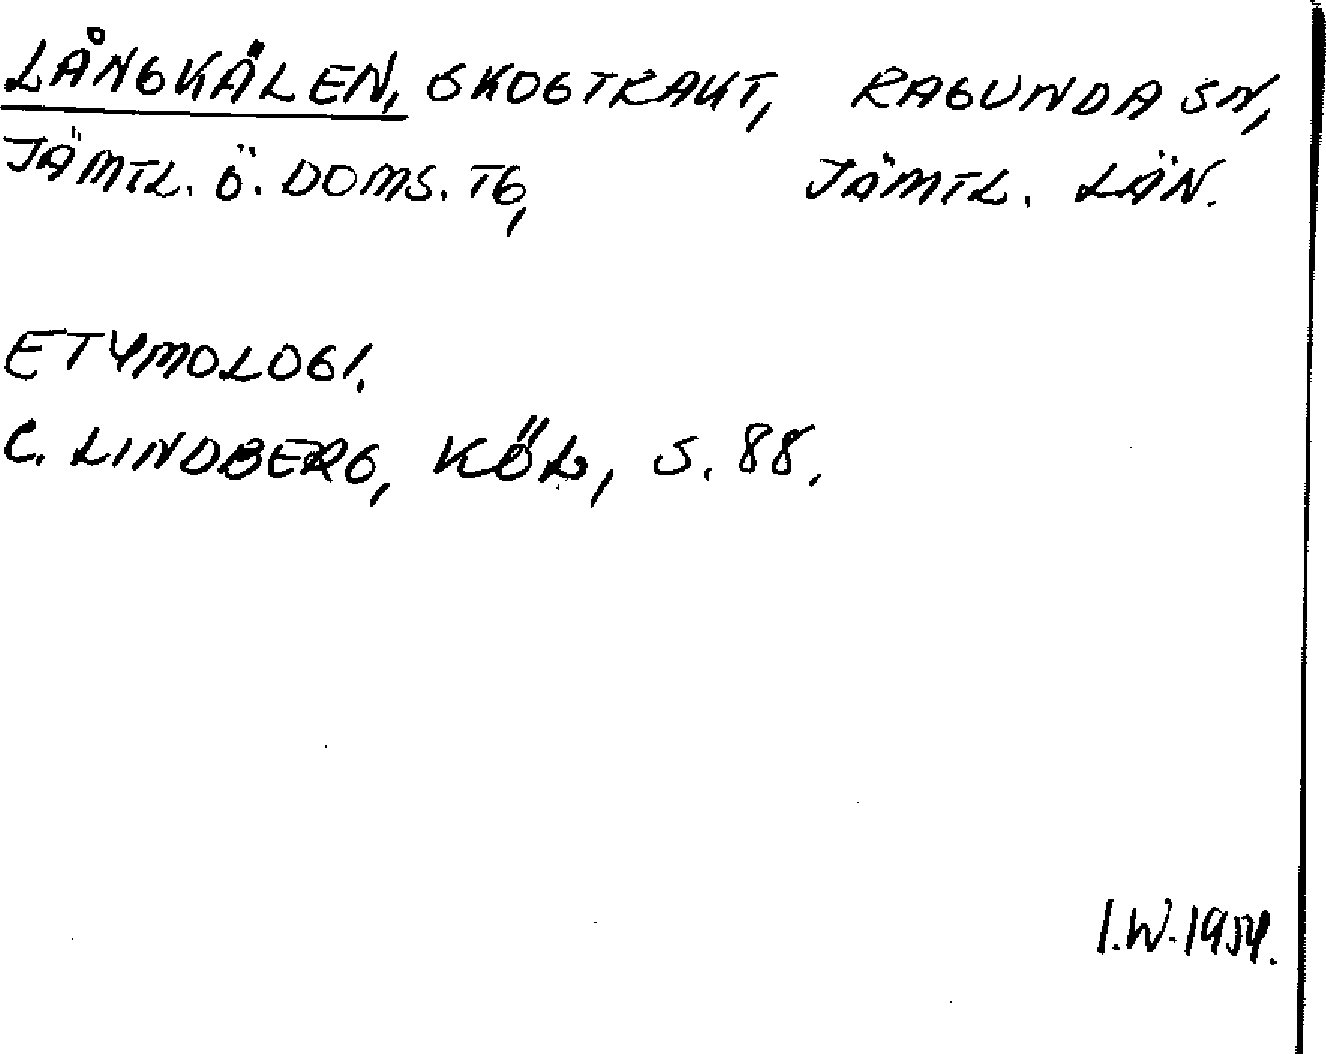 LÅNGKÄLEN, SKOGTRAKT, RAGUNDA SN,
JÄMTL. Ö. DOMS. TG, JÄMTL. LÄN.
ETYMOLOGI.
C. LINDBERG, KÖL, S. 88.
I.W. 1954.